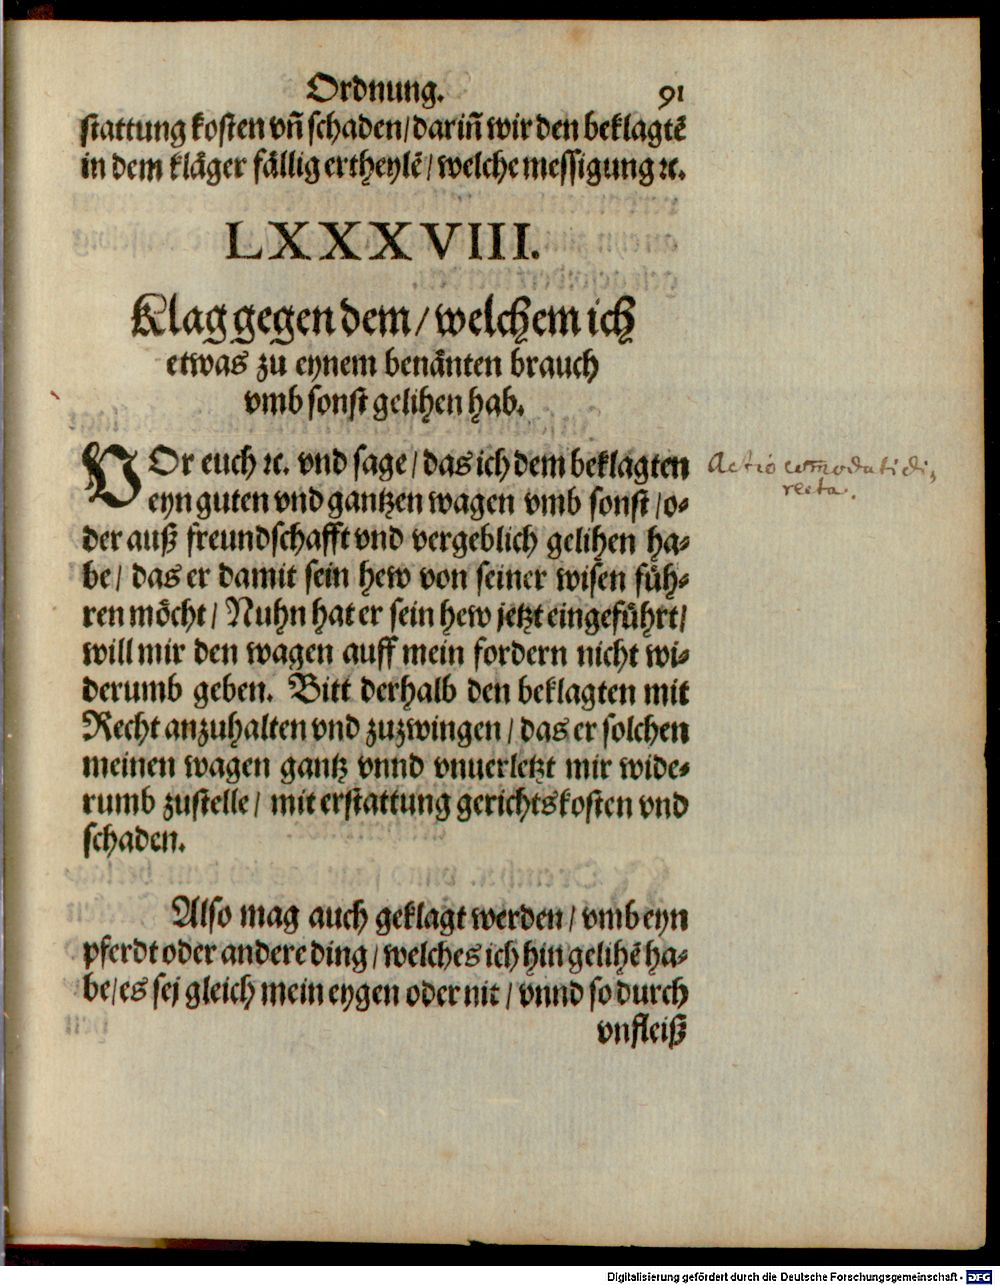 Ordnung. 91
stattung kosten vñ schaden/ dariñ wir den beklagtē
in dem kläger fällig ertheylē/ welche messigung ꝛc.
LXXXVIII.
Klag gegen dem/ welchem ich
etwas zu eynem benānten brauch
vmb sonst gelihen hab.
VOr euch ꝛc. vnd sage/ das ich dem beklagten
Actio com̄odati di-
recta.
eyn guten vnd gantzen wagen vmb sonst/ o-
der auß freundschafft vnd vergeblich gelihen ha-
be/ das er damit sein hew von seiner wisen füh-
ren möcht/ Nuhn hat er sein hew jetzt eingeführt/
will mir den wagen auff mein fordern nicht wi-
derumb geben. Bitt derhalb den beklagten mit
Recht anzuhalten vnd zuzwingen/ das er solchen
meinen wagen gantz vnnd vnuerletzt mir wide-
rumb zustelle/ mit erstattung gerichtskosten vnd
schaden.
Also mag auch geklagt werden/ vmb eyn
pferdt oder andere ding/ welches ich hin gelihē ha-
be/ es sej gleich mein eygen oder nit/ vnnd so durch
vnfleiß
Digitalisierung gefördert durch die Deutsche Forschungsgemeinschaft - DFG